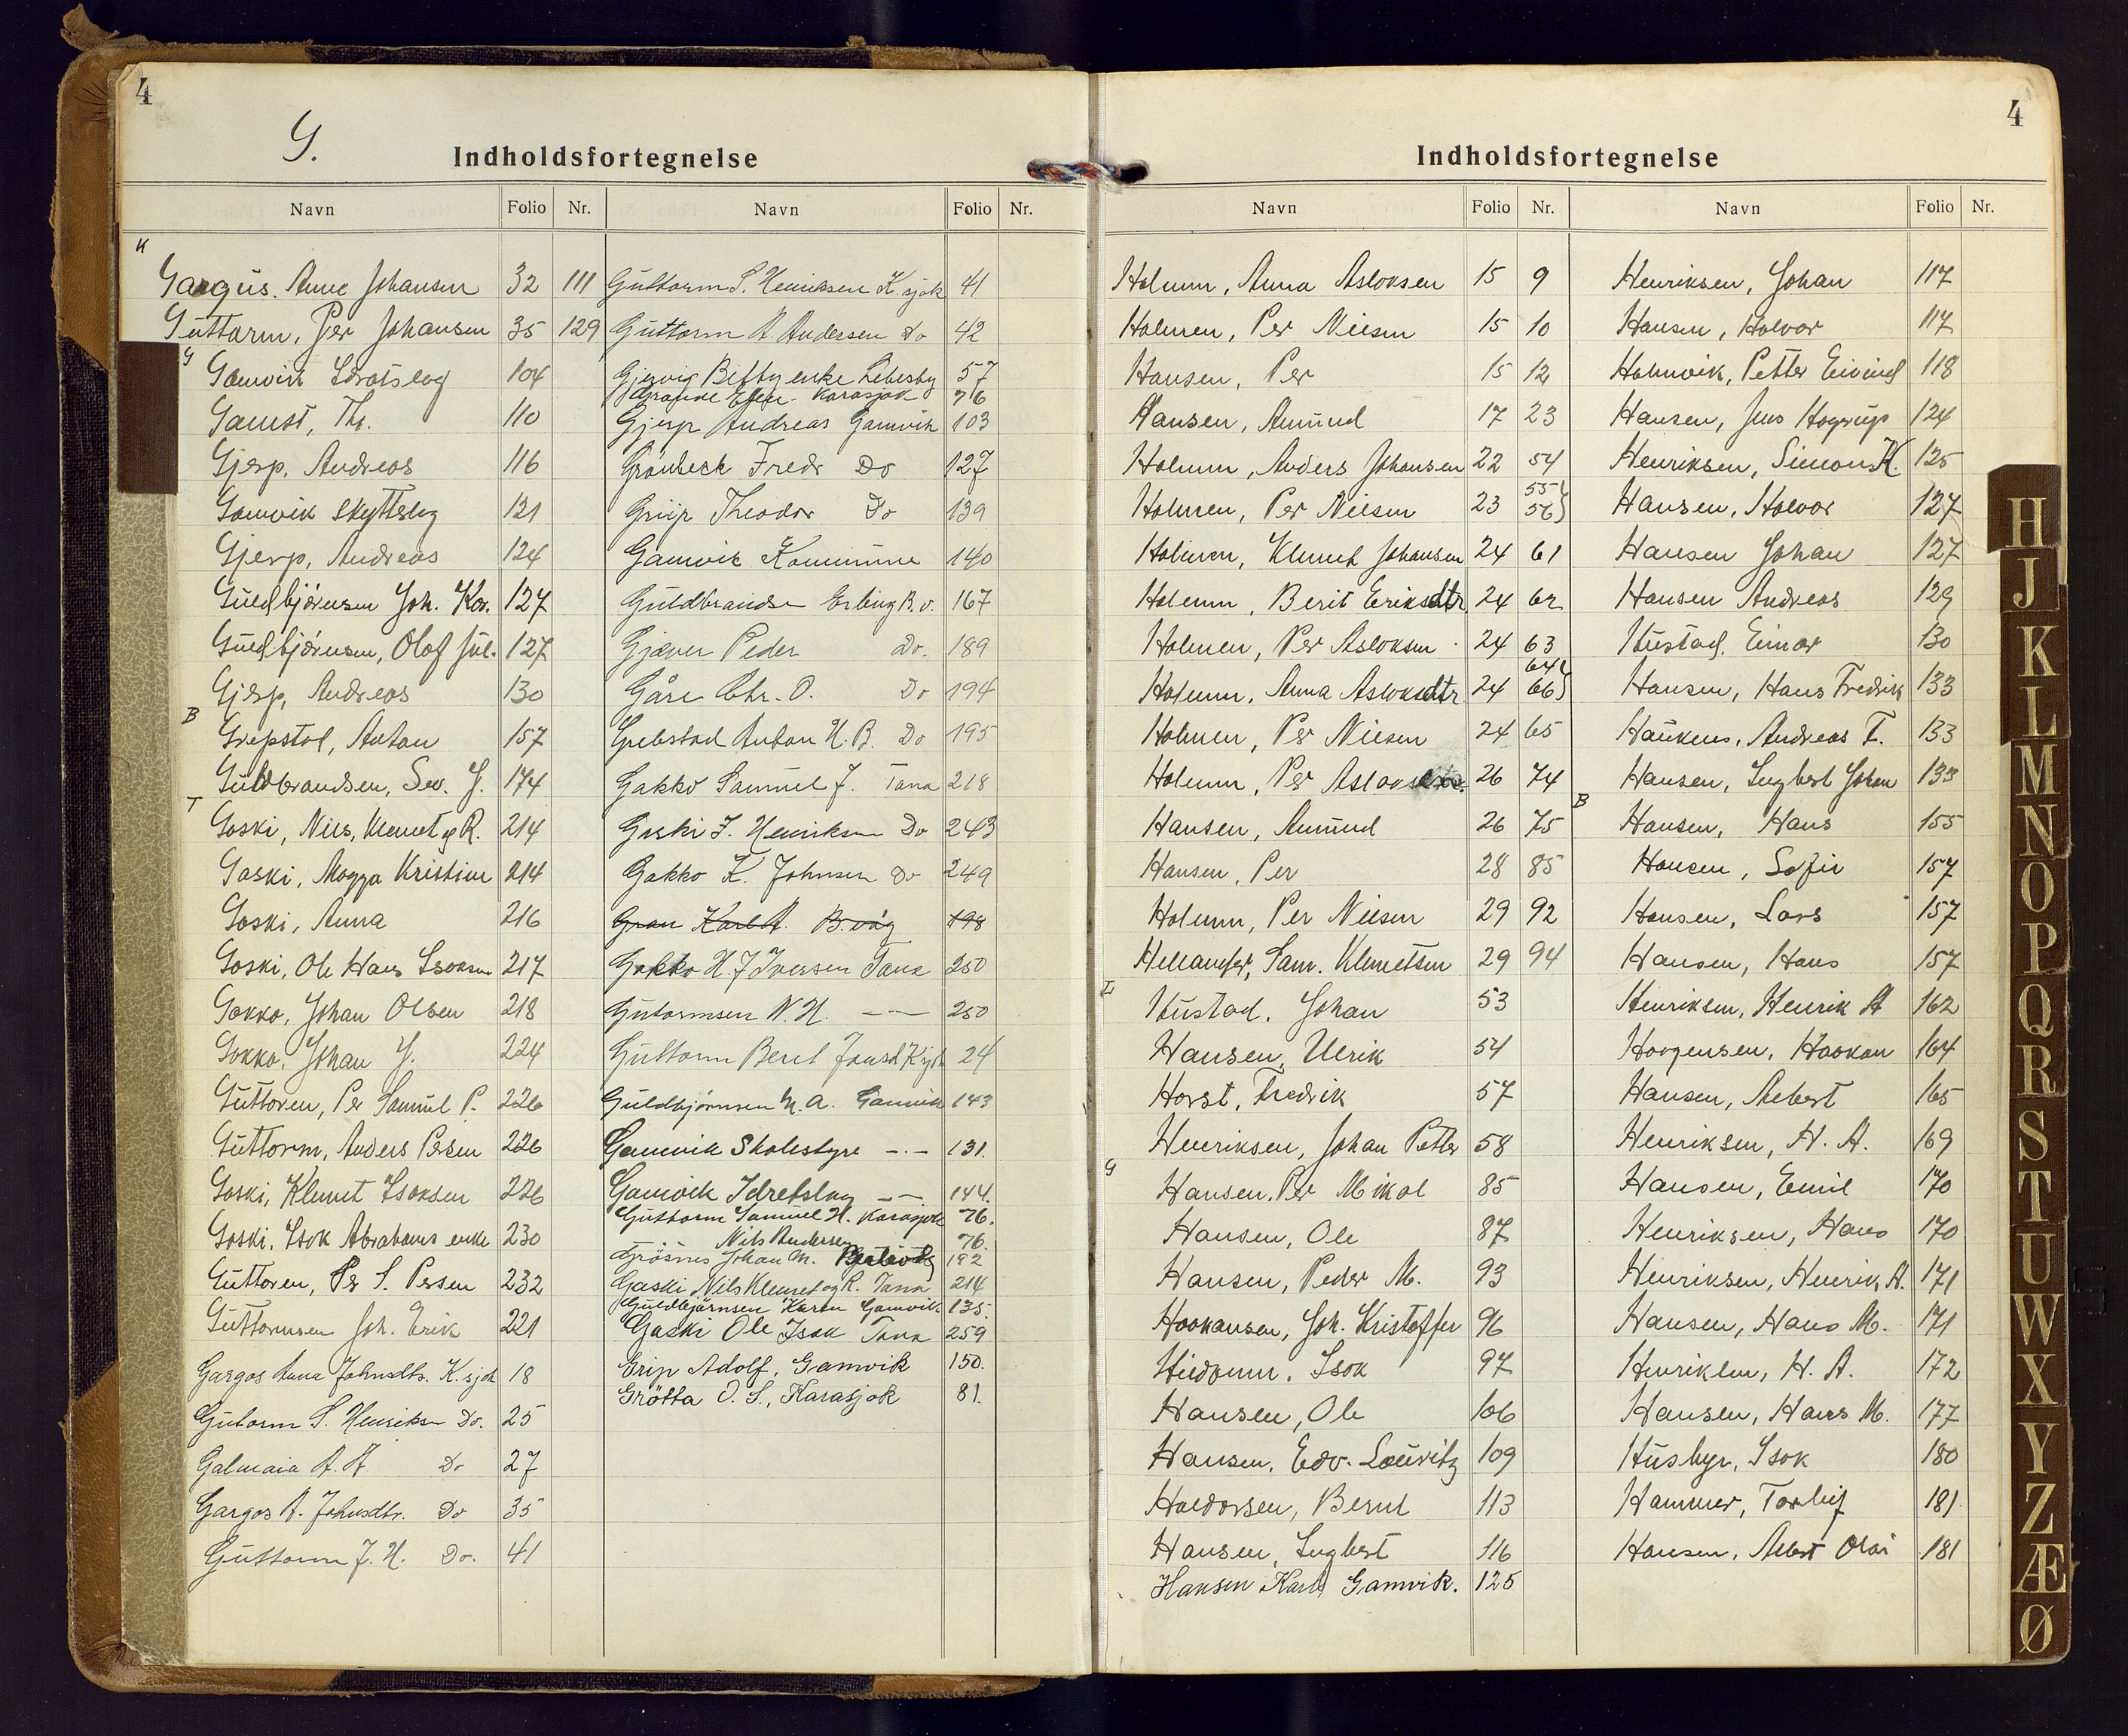 4
G.
Indholdsfortegnelse
Navn Folio Nr.
K
Gargus. Anne Johansen 32 111
Guttorm, Per Johansen 35 129
G
Gamvik Idrætslag 104
Gamst, Th. 110
Gjerp, Andreas 116
Gamvik Skyttelag 121
Gjerp, Andreas 124
Guldbjörnsen Joh. Kor. 127
Guldbjörnsen, Olaf Jul. 127
Gjerp, Andreas 130
B
Grepstad, Anton 157
Guldbrandsen, Sev. J. 174
T
Gaski, Nils, Klemet og R. 214
Gaski, Magga Kristine 214
Gaski, Anna 216
Gaski, Ole Hans Isaksen 217
Gakko, Johan Olsen 218
Gakko, Johan J. 224
Guttoren, Per Samuel P. 226
Guttorm, Anders Persen 226
Gaski, Klemet Isaksen 226
Gaski, Isak Abrahams enke 230
Guttoren, Per S. Persen 232
Guttormsen Joh. Erik 221
Gargos Anna Johnsdtr. K.sjok 18
Gutorm S. Henriksen Do. 25
Galmaia A. A. Do 27
Gargos A. Johnsdtr. Do 35
Guttorm J. H. Do. 41
Navn Folio Nr.
Guttorm S. Henriksen K.sjok 41
Guttorm A. Andersen Do 42
Gjervig Betty enke Lebesby 57
Grande Ellen. Karasjok 76
Gjerp Andreas Gamvik 103
Grönbeck Fredr Do 127
Griip Theodor Do 139
Gamvik Kommune 140
Guldbrandsen Erling B.v. 167
Gjæver Peder Do. 189
Gåre Chr. O. Do 194
Grebstad Anton H. B. Do 195
Gakko Samuel J. Tana 218
Gaski J. Henriksen Do 243
Gakko K. Johnsen Do 249
Gran Karl A. B.våg 198
Gakko H. J Iversen Tana 250
Gutormsen N. H. —— 250
Guttorm Beret Jonsd K.sjok 24
Guldbjørnsen M. A. Gamvik 143
Gamvik Skolestyre -.- 131.
Gamvik Idretslag —— 144.
Guttorm Samuel H. Karasjok 76.
Nils Andersen 76.
Grösnes Johan M. 192
Gaski Nils Klemet og R. Tana 214
Guldbjørnsen Karen Gamvik 135.
Gaski Ole Isak Tana 259
Grip Adolf, Gamvik 150.
Grötta O. S., Karasjok 81.
4
Indholdsfortegnelse
Navn Folio Nr.
Holmen, Anna Aslaksen 15 9
Holmen, Per Nilsen 15 10
Hansen, Per 15 12
Hansen, Amund 17 23
Holmen, Anders Johansen 22 54
Holmen, Per Nilsen 23 55 56}
Holmen, Klemet Johansen 24 61
Holmen, Berit Eriksdtr 24 62
Holmen, Per Aslaksen 24 63
Holmen, Anna Aslaksdtr 24 64 66}
Holmen, Per Nilsen 24 65
Holmen, Per 26 74
Hansen, Amund 26 75
Hansen, Per 28 85
Holmen, Per Nilsen 29 92
Hellander, Sam. Klemetsen 29 94
L
Hustad. Johan 53
Hansen, Ulrik 54
Horst, Fredrik 57
Henriksen, Johan Petter 58
G
Hansen, Per Mikal 85
Hansen, Ole 87
Hansen, Peder M. 93
Haakansen, Joh. Kristoffer 96
Isak 97
Hansen, Ole 106
Hansen, Edv. Lauritz 109
Haldorsen, Bernt 113
Hansen, Ingbert 116
Hansen Karl, Gamvik. 125
Navn Folio Nr.
Henriksen, Johan 117
Hansen, Halvor 117
Holmvik, Petter Eivind 118
Hansen, Jens Hagrup 124
Henriksen, Simon H. 125
Hansen, Halvor 127
Hansen Johan 127
Hansen Andreas 129
Hustad. Einar 130
Hansen, Hans Fredrik 133
Haukens, Andreas T. 133
Hansen, Ingbert Johan 133
B
Hansen, Hans 155
Hansen, Sofie 157
Hansen, Lars 157
Hansen, Hans 157
Henriksen, Henrik A 162
Haagensen, Haakon 164
Hansen, Albert 165
Henriksen, H. A. 169
Hansen, Emil 170
Henriksen, Hans 170
Henriksen, Henrik A. 171
Hansen, Hans M. 171
Henriksen, H. A. 172
Hansen, Hans M. 177
Husbyn, Isak 180
Hammer, Torleif 181
Hansen, Albert Olai 181
H
J
K
L
M
N
O
P
Q
R
S
T
U
W
X
Y
Z
Æ
Ø